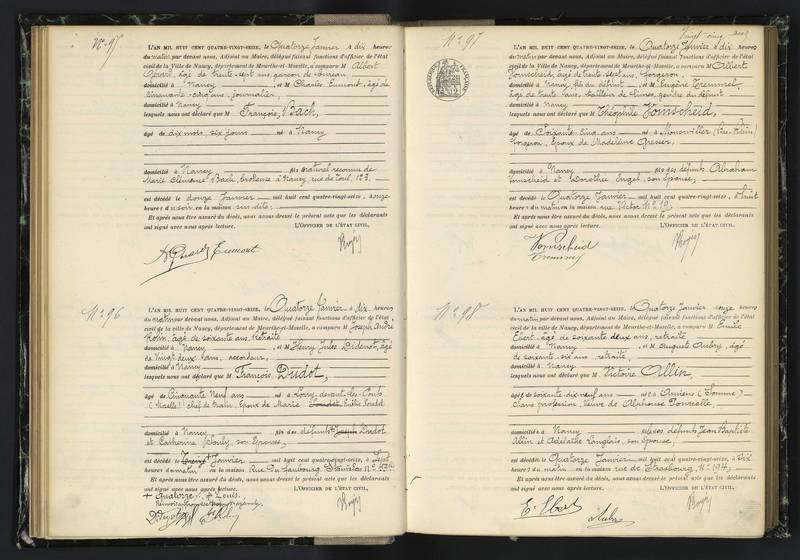 Nº 95
L'AN MIL HUIT CENT QUATRE-VINGT-SEIZE, le Quatorze Janvier à dix heures
du matin par devant nous, Adjoint au Maire, délégué faisant fonctions d'officier de l'état
civil de la Ville de Nancy, département de Meurthe-et-Moselle, a comparu M Albert
Gérard, âgé de trente-sept ans, garçon de bureau,
domicilié à Nancy, et M Charles Eumont, âgé de
cinquante cinq ans, journalier,
domicilié à Nancy
lesquels nous ont déclaré que M François, Bach,
âgé de dix mois, six jours né à Nancy
domicilié à Nancy fils naturel reconnu de
Marie Clémence Bach, brodeuse à Nancy, rue de Toul, 123
est décédé le douze Janvier mil huit cent quatre-vingt-seize, à onze
heures du soir en la maison sus dite;
Et après nous être assuré du décès, nous avons dressé le présent acte que les déclarants
ont signé avec nous après lecture. L'OFFICIER DE L'ÉTAT CIVIL,
A Gérard Eumont
Nº 96
L'AN MIL HUIT CENT QUATRE-VINGT-SEIZE, le Quatorze Janvier à dix heures
du matin par devant nous, Adjoint au Maire, délégué faisant fonctions d'officier de l'état
civil de la ville de Nancy, département de Meurthe-et-Moselle, a comparu M Joseph André
âgé de soixante ans, Retraité
domicilié à Nancy, et M Henry Jules Didenot, âgé
de vingt deux ans,
domicilié à Nancy
lesquels nous ont déclaré que M François Dudot,
âgé de Cinquante Neuf ans né à Lorry-devant-le-Pont
(Moselle) chef de train, Epoux de Marie
domicilié à Nancy fils des défunts Joseph Dudot
et Catherine son Epouse,
est décédé le Treize Janvier mil huit cent quatre-vingt-seize, à Sept
heures du matin en la maison Rue du Faubourg Stanislas Nº
Et après nous être assuré du décès, nous avons dressé le présent acte que les déclarants
ont signé avec nous après lecture. L'OFFICIER DE L'ÉTAT CIVIL,
+ Quatorze + Louis.
Vingt-cinq
Nº 97
RÉPUBLIQUE FRANÇAISE
L'AN MIL HUIT CENT QUATRE-VINGT-SEIZE, le Quatorze Janvier à dix heures
du matin par devant nous, Adjoint au Maire, délégué faisant fonctions d'officier de l'état
civil de la Ville de Nancy, département de Meurthe-et-Moselle, a comparu M Albert
Vomscheid, âgé de trente sept ans, forgeron,
domicilié à Nancy, fils du défunt, et M Eugène Tremmel,
âgé de trente trois ans, tailleur de limes, gendre du défunt
domicilié à Nancy
lesquels nous ont déclaré que M Théophile Vomscheid,
âgé de Soixante cinq ans né à (Bas-Rhin)
forgeron, Epoux de Madeleine
domicilié à Nancy fils des défunts Abraham
Vomscheid et Dorothée Engel, son épouse,
est décédé le Quatorze Janvier mil huit cent quatre-vingt-seize, à huit
heures du matin en la maison rue Victor Nº 19;
Et après nous être assuré du décès, nous avons dressé le présent acte que les déclarants
ont signé avec nous après lecture. L'OFFICIER DE L'ÉTAT CIVIL,
Vomscheid
Tremmel
Nº 98
L'AN MIL HUIT CENT QUATRE-VINGT-SEIZE, le Quatorze Janvier onze heures
du matin par devant nous, Adjoint au Maire, délégué faisant fonctions d'officier de l'état
civil de la ville de Nancy, département de Meurthe-et-Moselle, a comparu M Emile
Ebert, âgé de soixante deux ans, retraité
domicilié à Nancy, et M Auguste Aubry, âgé
de soixante six ans, retraité,
domicilié à Nancy
lesquels nous ont déclaré que M Victoire Allin,
âgée de soixante dix neuf ans née à Amiens (Somme)
Sans profession, Veuve de Alphonse
domiciliée à Nancy fille des défunts Jean Baptiste
Allin et Adélaïde Langlois, son Epouse,
est décédée le Quatorze Janvier mil huit cent quatre-vingt-seize, à Dix
heures du matin en la maison rue de Strasbourg, Nº 194;
Et après nous être assuré du décès, nous avons dressé le présent acte que les déclarants
ont signé avec nous après lecture. L'OFFICIER DE L'ÉTAT CIVIL,
E. Ebert
Aubry